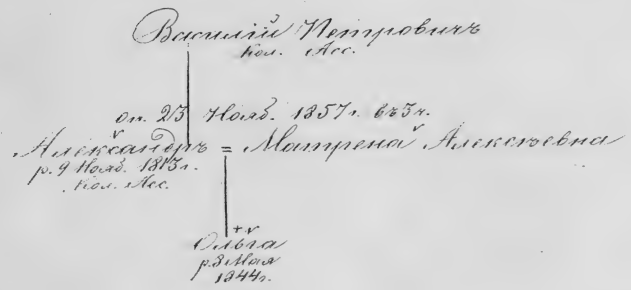 Василій Петровичъ
Кол. Асс.
оп. 23 Нояб. 1857 г. въ 3 ч.
Александръ = Матрена Алексѣевна
р. 9 Нояб. 1813 г.
Кол. Асс.
Ольга
р. 3 Мая
1844 г.